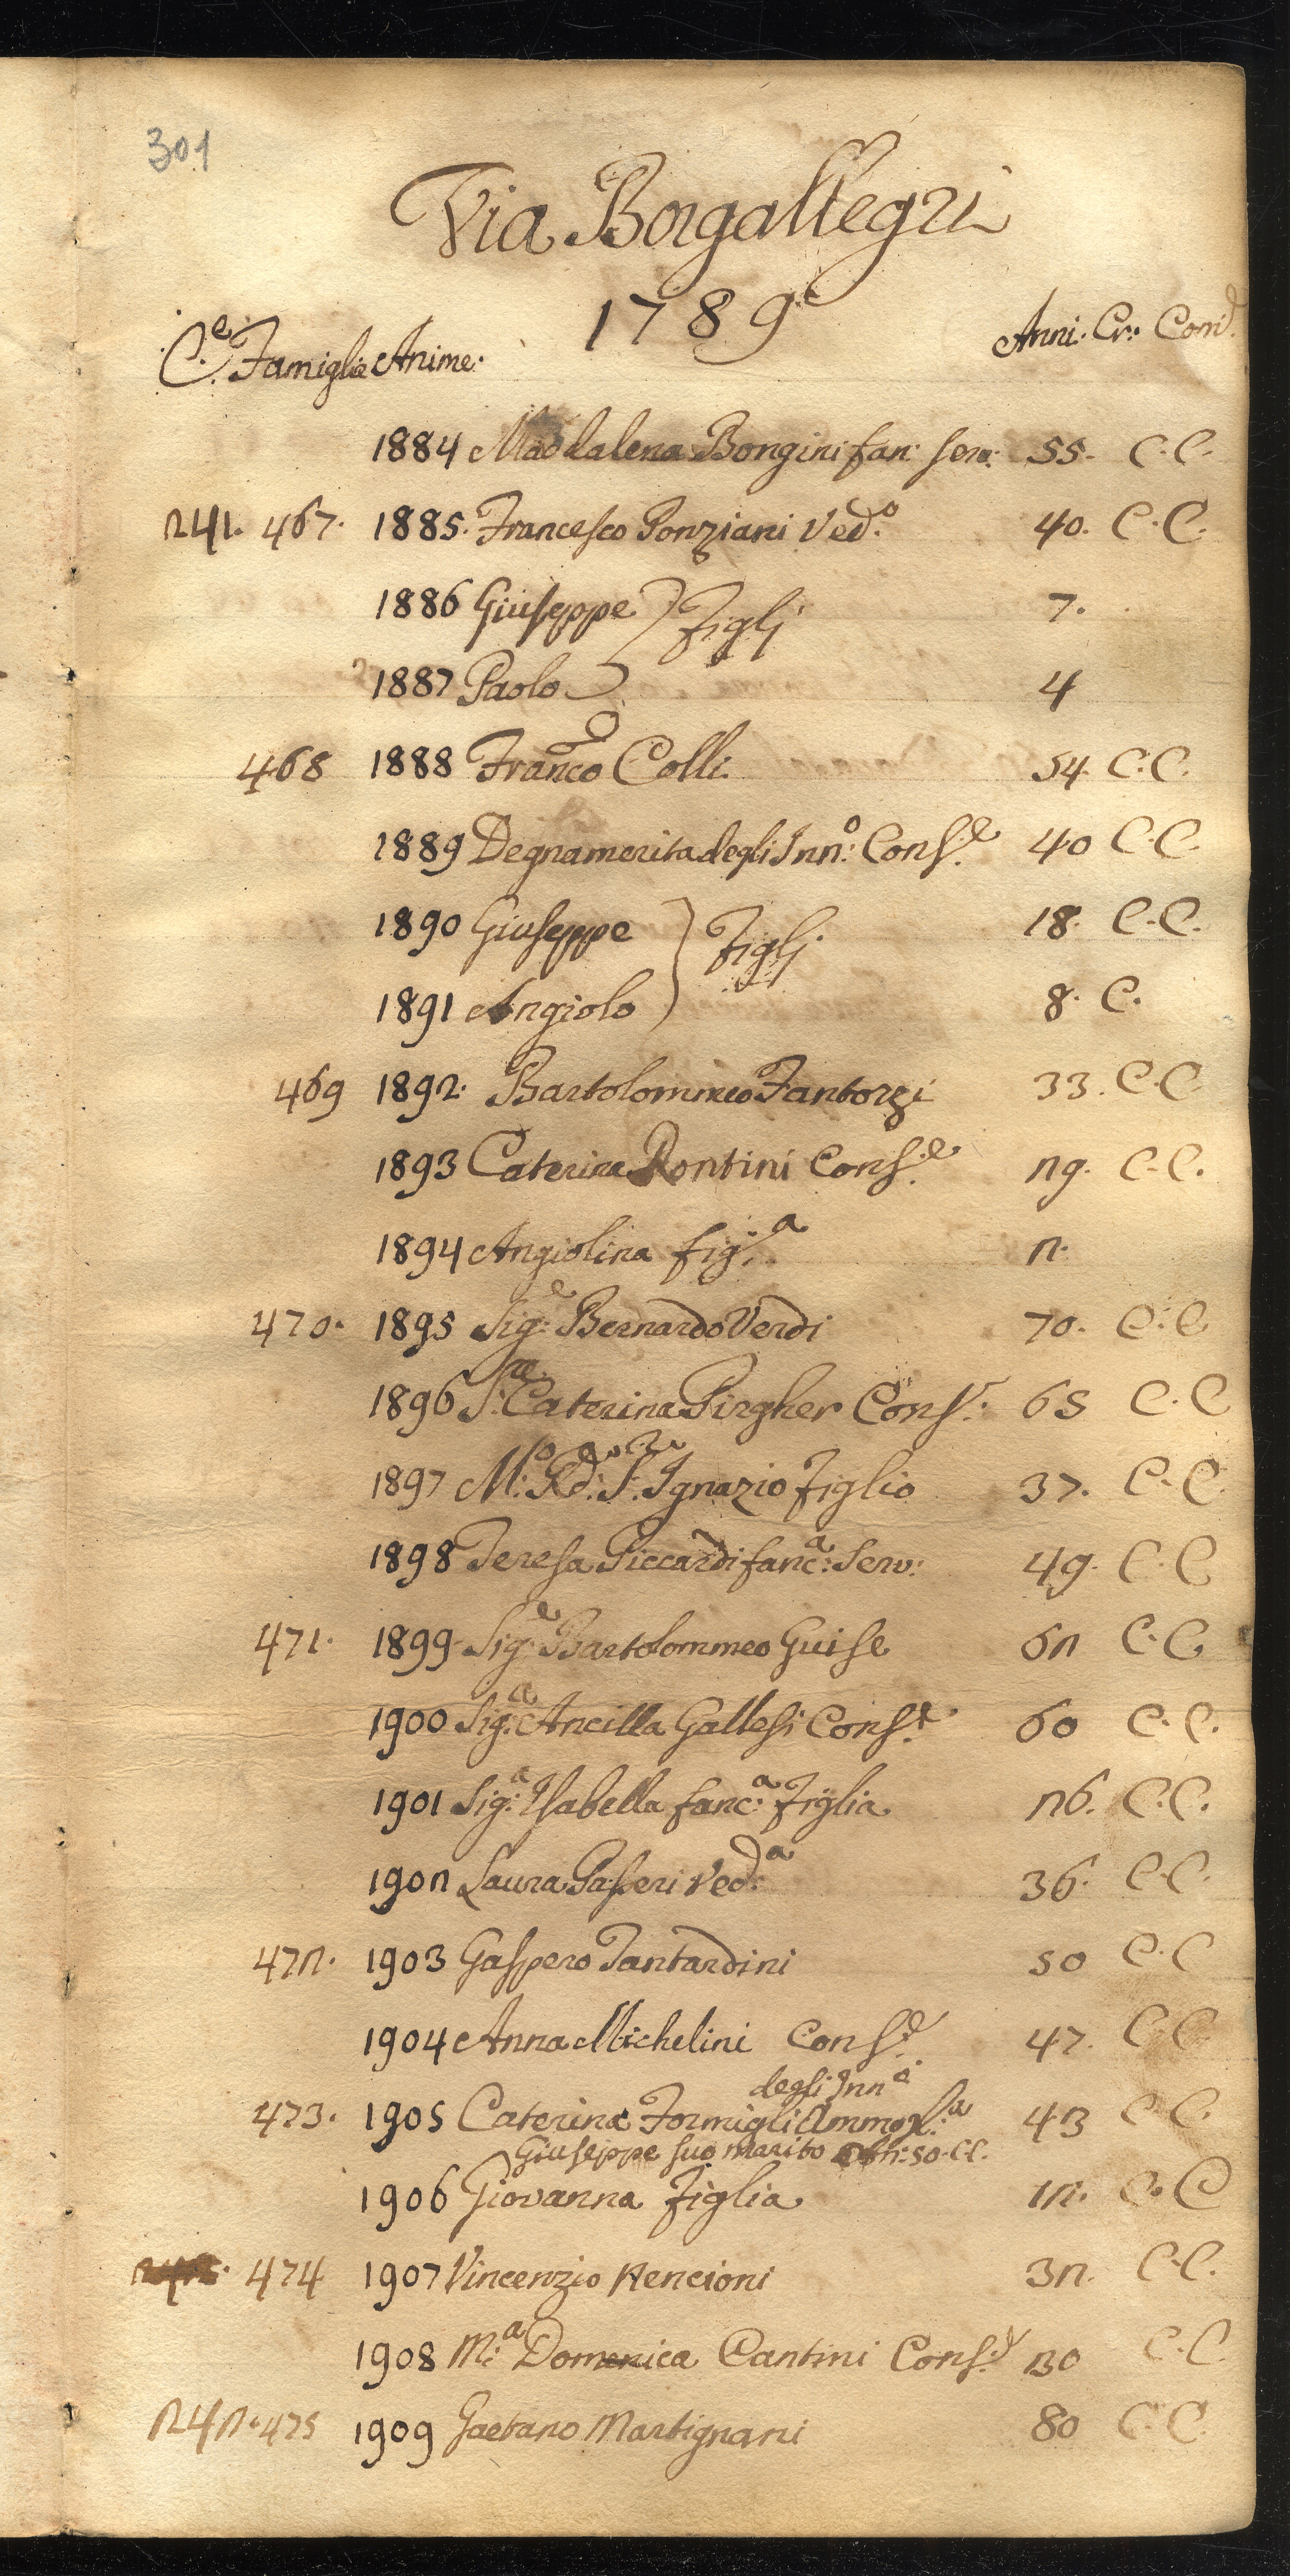 301
Via Borgallegri
1789
C.e Famiglie Anime: Anni: Cr: Com:
1884 Maddalena Bongini fan: serv: 55. C.C.
241. 467. 1885. Francesco Ponziani Ved:o 40. C.C.
1886 Giuseppe } Figlj 7.
1887 Paolo } 4
468 1888 Franco Colli 54. C.C.
1889 Degnamerita degli Inn:o Cons:e 40 C.C.
1890 Giuseppe } Figlj 18. C.C.
1891 Angiolo } 8. C.
469 1892. Bartolommeo Fantozzi 33. C.C.
1893 Caterina Rontini Cons:e 29. C.C.
1894 Angiolina fig:a 2.
470. 1895 Sig:e Bernardo Verdi 70. C.C
1896 S:ra Caterina Pirgher Cons: 65 C.C
1897 M:o Rd:o S: Ignazio Figlio 37. C.C.
1898 Teresa Piccardi fanc:a Serv: 49. C.C
471. 1899 Sig:e Bartolommeo Guise 62 C.C.
1900 Sig:a Ancilla Gallesi Cons:e 60 C.C.
1901 Sig:a Isabella fanc:a Figlia 26. C.C.
1902 Laura Passeri Ved:a 36. C.C.
472. 1903 Gaspero Tantardini 50 C.C
1904 Anna Michelini Cons:e 47. C.C
degli Inn:i
473. 1905 Caterina Formigli Ammog:a 43 C.C.
Giuseppe suo marito 50. CC.
1906 Giovanna Figlia 12. C.C
474 1907 Vincenzio Nencioni 32. C.C.
1908 M:a Domenica Cantini Cons:e 30 C.C.
242. 475 1909 Gaetano Martignani 80 C.C